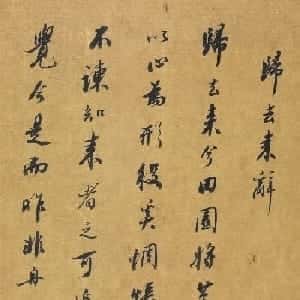 歸去來辭
歸去來兮田園將蕪
以心為形役奚惆悵
不諫知來者之可追
覺今是而昨非舟